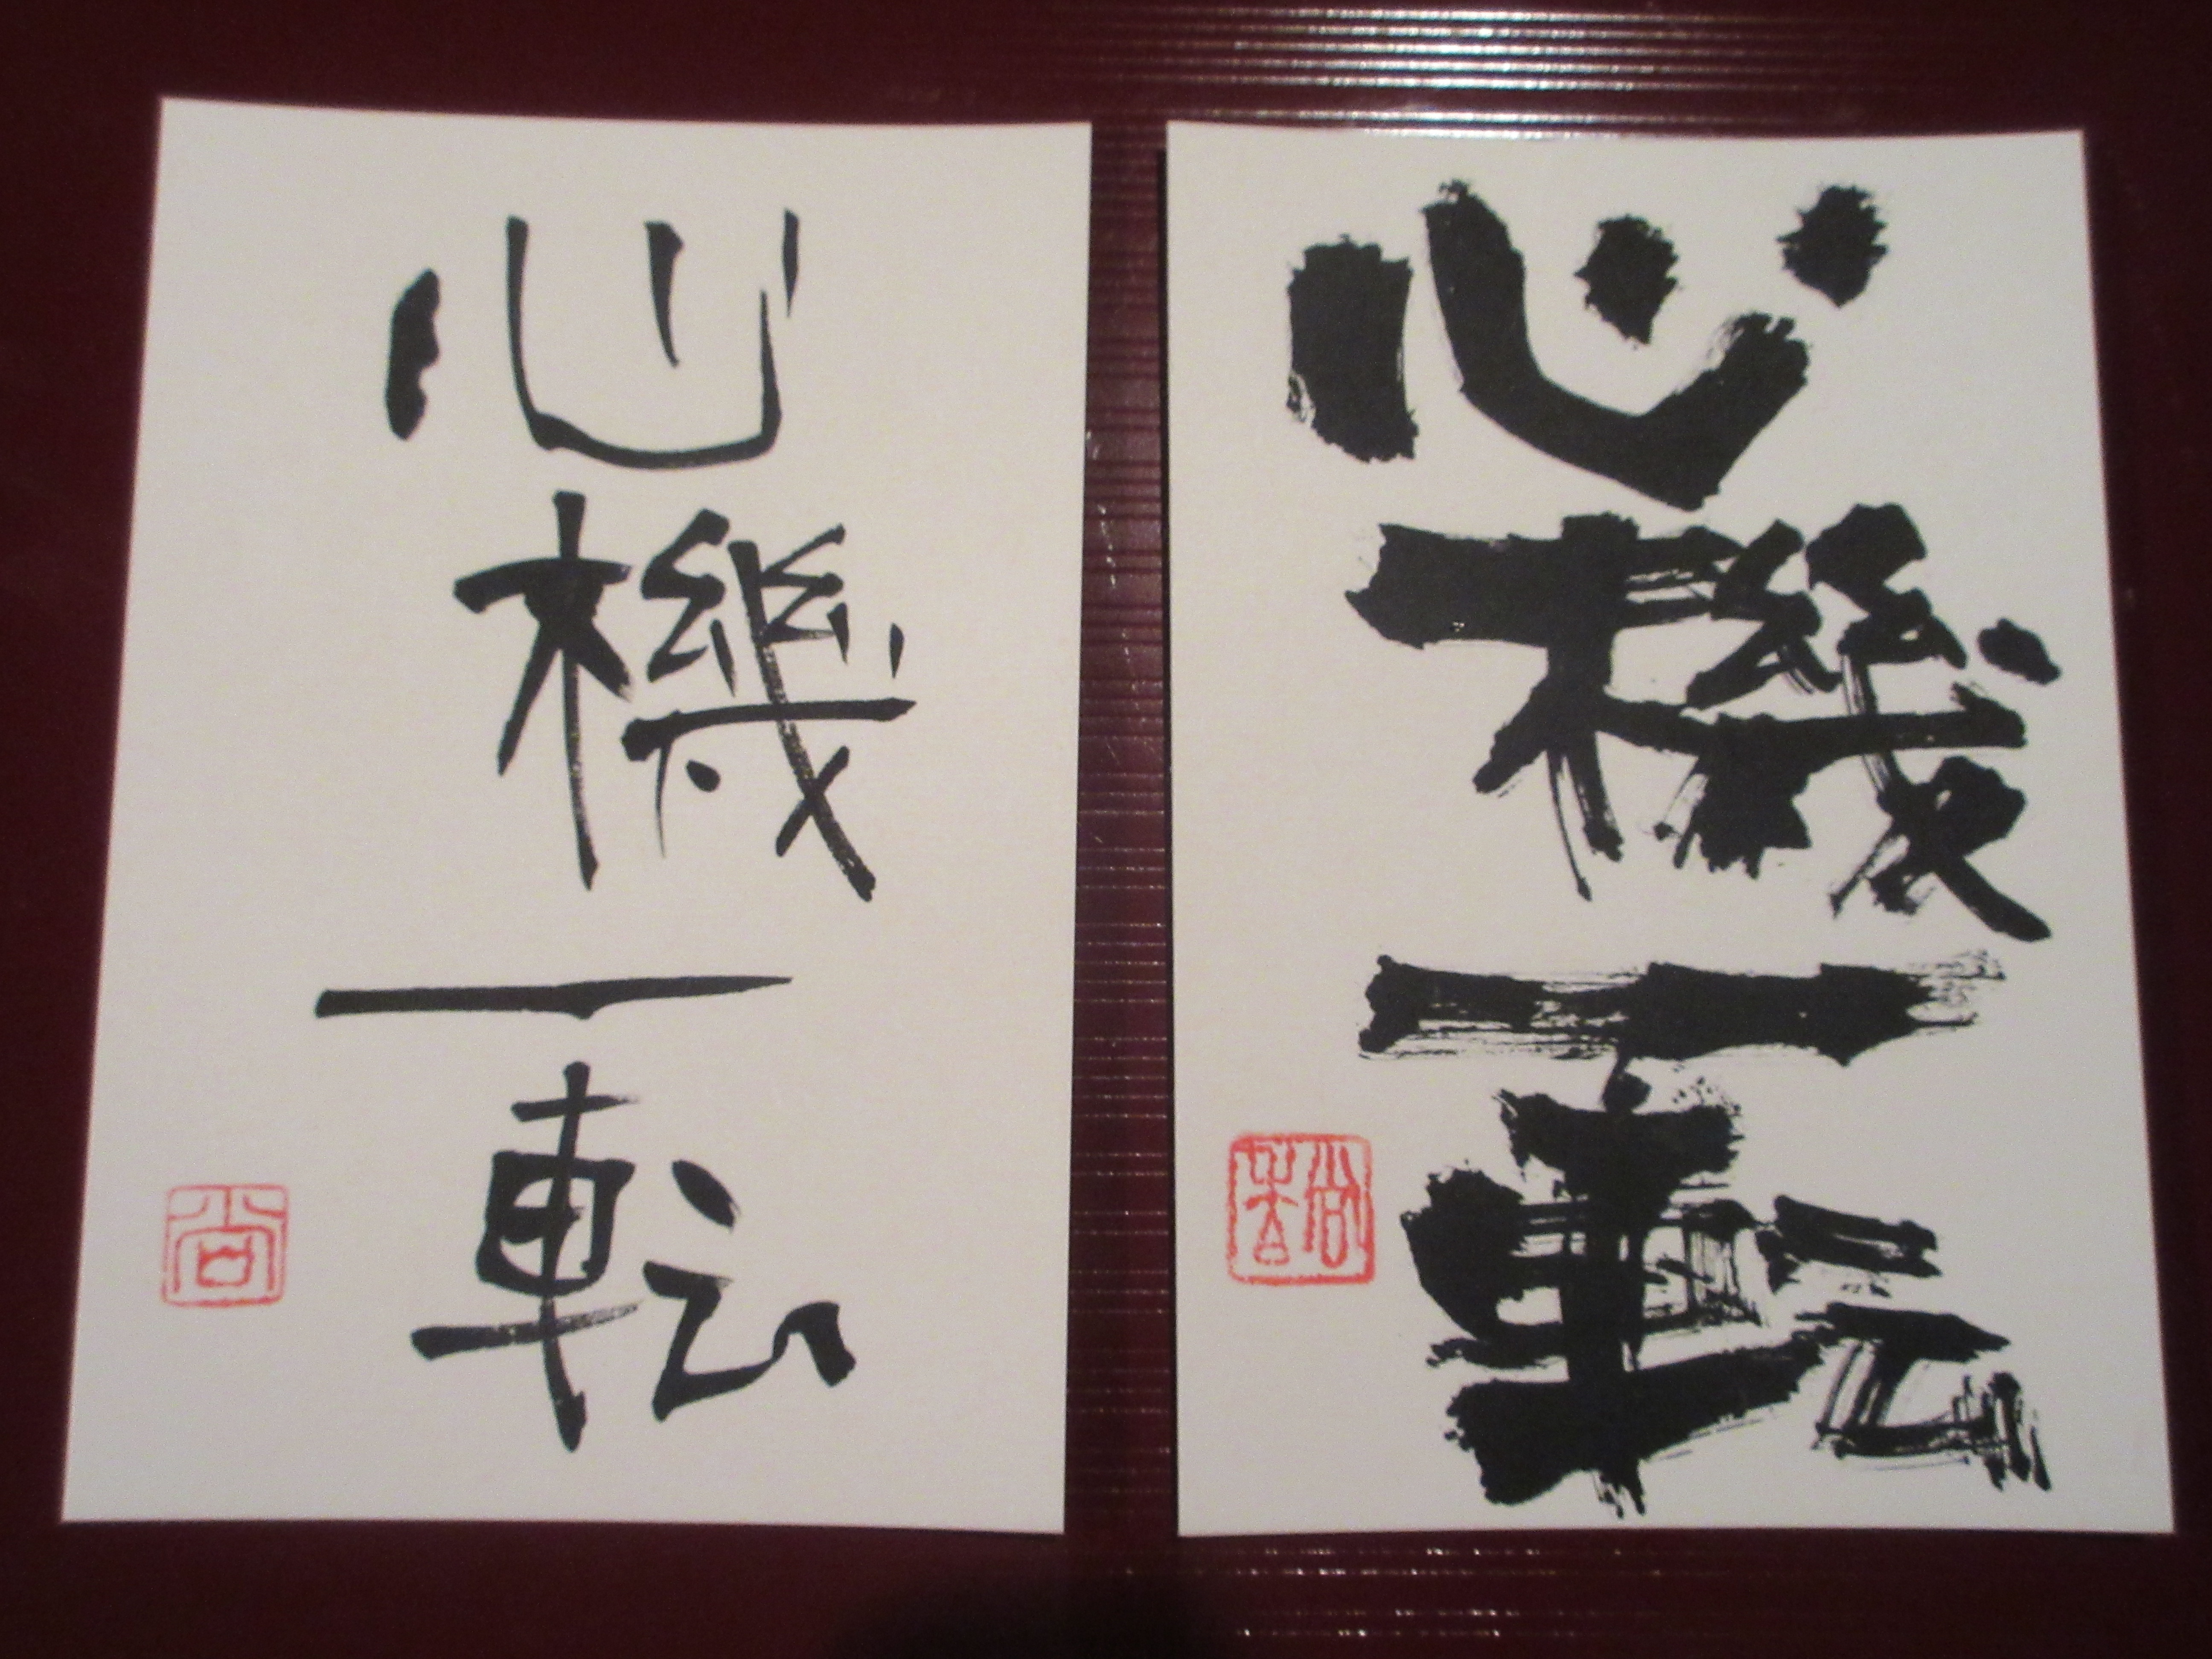 心機一転
尚
心機一転